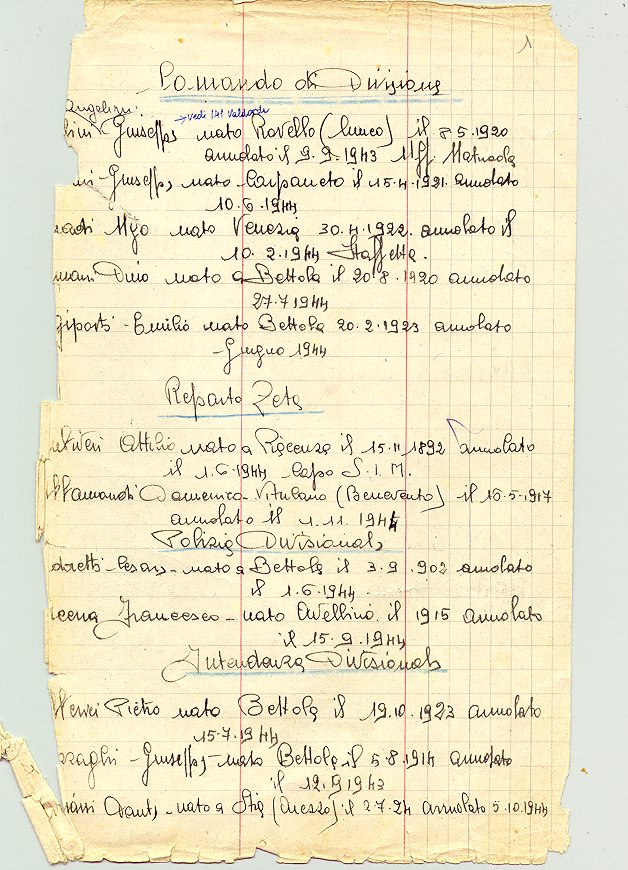 1
Comando di Divisione
Angelini
→ vedi 141 Valdardi
lini Giuseppe nato Rovello (Cuneo) il 8.5.1920
arruolato il 9.9.1943 Uff. Matricola
Giuseppe nato Carpaneto il 15.4.1921 arruolato
10.6.1944
Ugo nato Venezia 30.4.1922. arruolato il
10.2.1944 Staffetta.
mani Dino nato a Bettola il 20.8.1920 arruolato
27.7.1944
giporti - Emilio nato Bettola 20.2.1923 arruolato
- Giugno 1944
Reparto Zeta
Attilio nato a Piacenza il 15.11.1892 arruolato
il 1.6.1944 Capo S.I.M.
Domenico - Vitulano (Benevento) il 16.5.1917
arruolato il 1.11.1944
Polizia Divisionale
dretti - Cesare - nato a Bettola il 3.9.902 arruolato
il 1.6.1944.
cena Francesco - nato Avellino il 1915 arruolato
il 15.9.1944
Intendenza Divisionale
Pietro nato Bettola il 19.10.1923 arruolato
15.7.1944
zzaghi - Giuseppe - nato Bettola il 5.8.1914 arruolato
il 12.9.1943
Dante - nato a Stia (Arezzo) il 2.7.24 arruolato 5.10.1944